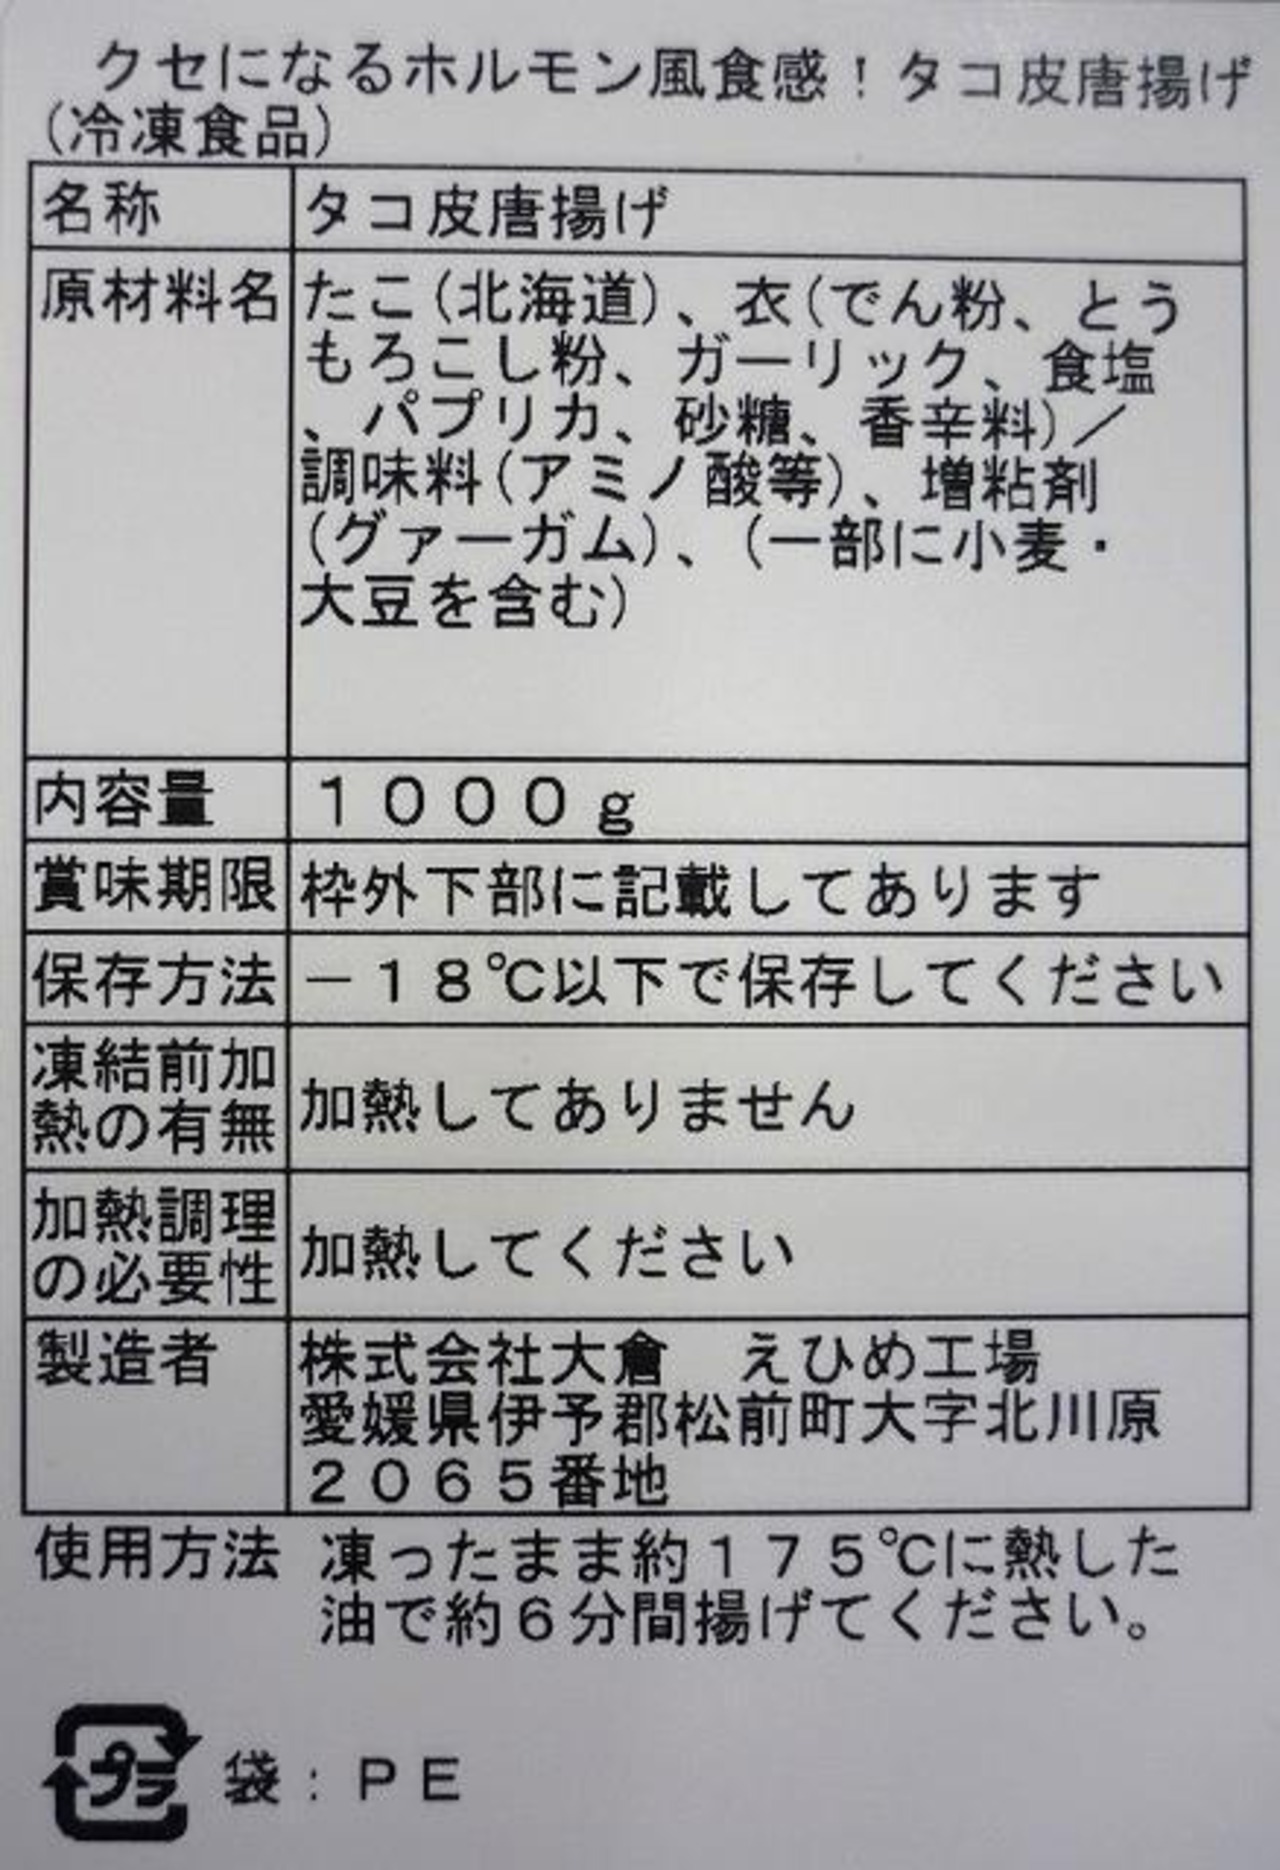 クセになるホルモン風食感！タコ皮唐揚げ
(冷凍食品)
名称
タコ皮唐揚げ
原材料名
たこ(北海道)、衣(でん粉、とう
もろこし粉、ガーリック、食塩
、パプリカ、砂糖、香辛料)／
調味料(アミノ酸等)、増粘剤
(グァーガム)、(一部に小麦・
大豆を含む)
内容量
１０００ｇ
賞味期限
枠外下部に記載してあります
保存方法
－１８℃以下で保存してください
凍結前加
熱の有無
加熱してありません
加熱調理
の必要性
加熱してください
製造者
株式会社大倉　えひめ工場
愛媛県伊予郡松前町大字北川原
２０６５番地
使用方法　凍ったまま約１７５℃に熱した
油で約６分間揚げてください。
プラ
袋：ＰＥ